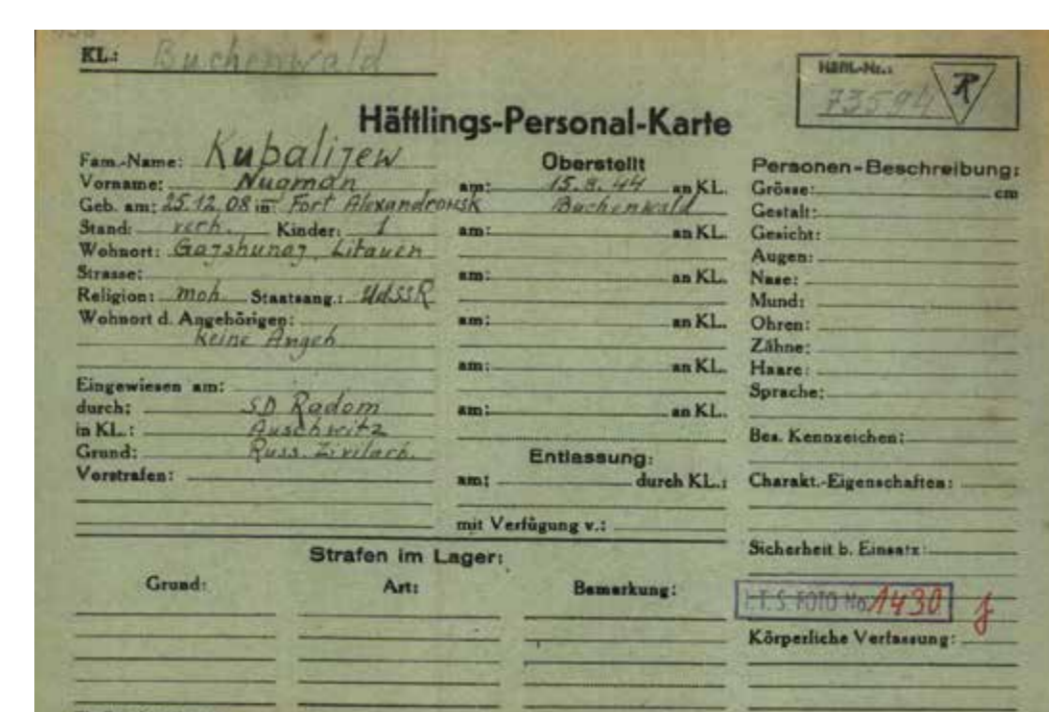 KL.: Buchenwald
Häftl.-Nr.:
73594 R
Häftlings-Personal-Karte
Fam.-Name: Kubalijew
Vorname: Nugman
Geb. am: 25.12.08 in Fort Alexandrowsk
Stand: verh. Kinder: 1
Wohnort: Litauen
Strasse:
Religion: moh. Staatsang.: UdSSR
Wohnort d. Angehörigen:
keine Angeh.
Eingewiesen am:
durch: SD Radom
in KL.: Auschwitz
Grund: Russ. Zivilarb.
Vorstrafen:
Oberstellt
am: 15.8.44 an KL.
Buchenwald
am: an KL.
am: an KL.
am: an KL.
am: an KL.
am: an KL.
Entlassung:
am: durch KL.:
mit Verfügung v.:
Personen-Beschreibung:
Grösse: cm
Gestalt:
Gesicht:
Augen:
Nase:
Mund:
Ohren:
Zähne:
Haare:
Sprache:
Bes. Kennzeichen:
Charakt.-Eigenschaften:
Sicherheit b. Einsatz:
I.T.S. FOTO No. 1430
Körperliche Verfassung:
Strafen im Lager:
Grund: Art: Bemerkung: